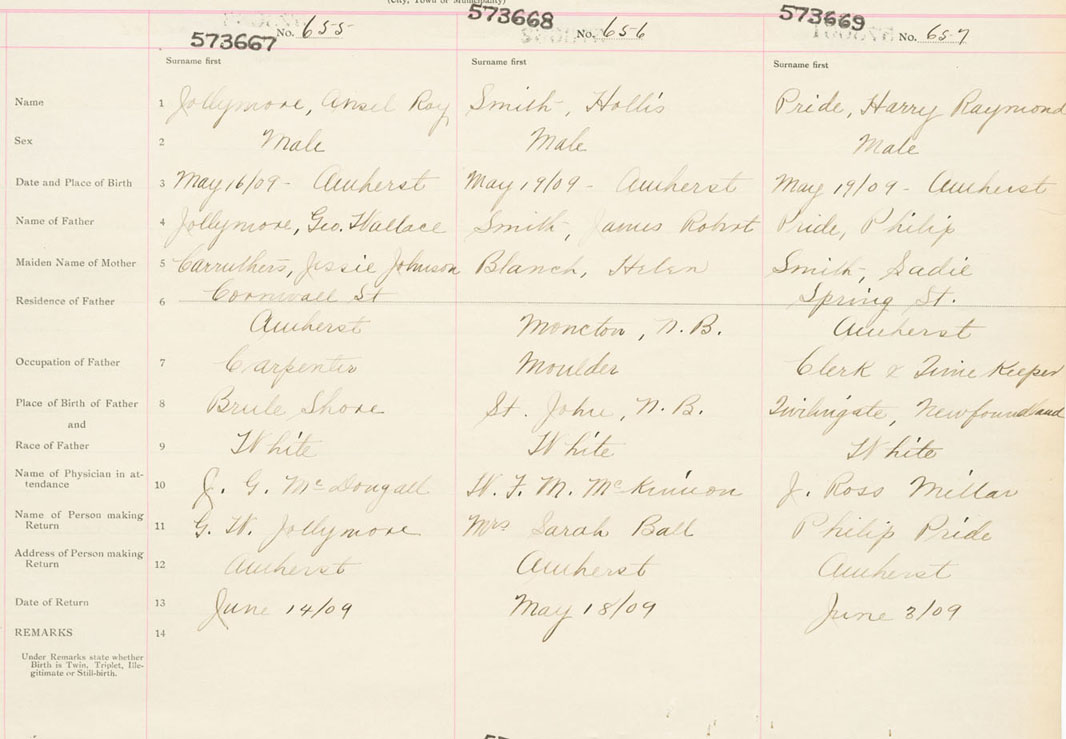 (City, Town or Municipality)
573667 No. 655
573668 No. 656
573669 No. 657
Surname first Surname first Surname first
Name 1 Jollymore, Ansel Roy Smith, Hollis Pride, Harry Raymond
Sex 2 Male Male Male
Date and Place of Birth 3 May 16/09 - Amherst May 19/09 - Amherst May 19/09 - Amherst
Name of Father 4 Jollymore, Geo. Wallace Smith, James Robert Pride, Philip
Maiden Name of Mother 5 Carruthers, Jessie Johnson Blanch, Helen Smith, Sadie
Residence of Father 6 Cornwall St Spring St.
Amherst Moncton, N.B. Amherst
Occupation of Father 7 Carpenter Moulder Clerk & Time Keeper
Place of Birth of Father 8 Brule Shore St. John, N.B. Twilingate, Newfoundland
and
Race of Father 9 White White White
Name of Physician in at-
tendance 10 J. G. McDougall W. F. M. McKinnon J. Ross Millar
Name of Person making
Return 11 G. W. Jollymore Mrs Sarah Ball Philip Pride
Address of Person making
Return 12 Amherst Amherst Amherst
Date of Return 13 June 14/09 May 18/09 June 3/09
REMARKS 14
Under Remarks state whether
Birth is Twin, Triplet, Ille-
gitimate or Still-birth.